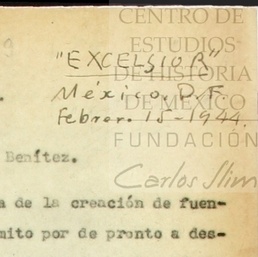 CENTRO DE
ESTUDIOS
DE HISTORIA
DE MÉXICO
FUNDACIÓN
Carlos Slim
"EXCELSIOR"
México, D.F.
Febrer. 15-1944.
Benítez.
a de la creación de fuen-
mito por de pronto a des-